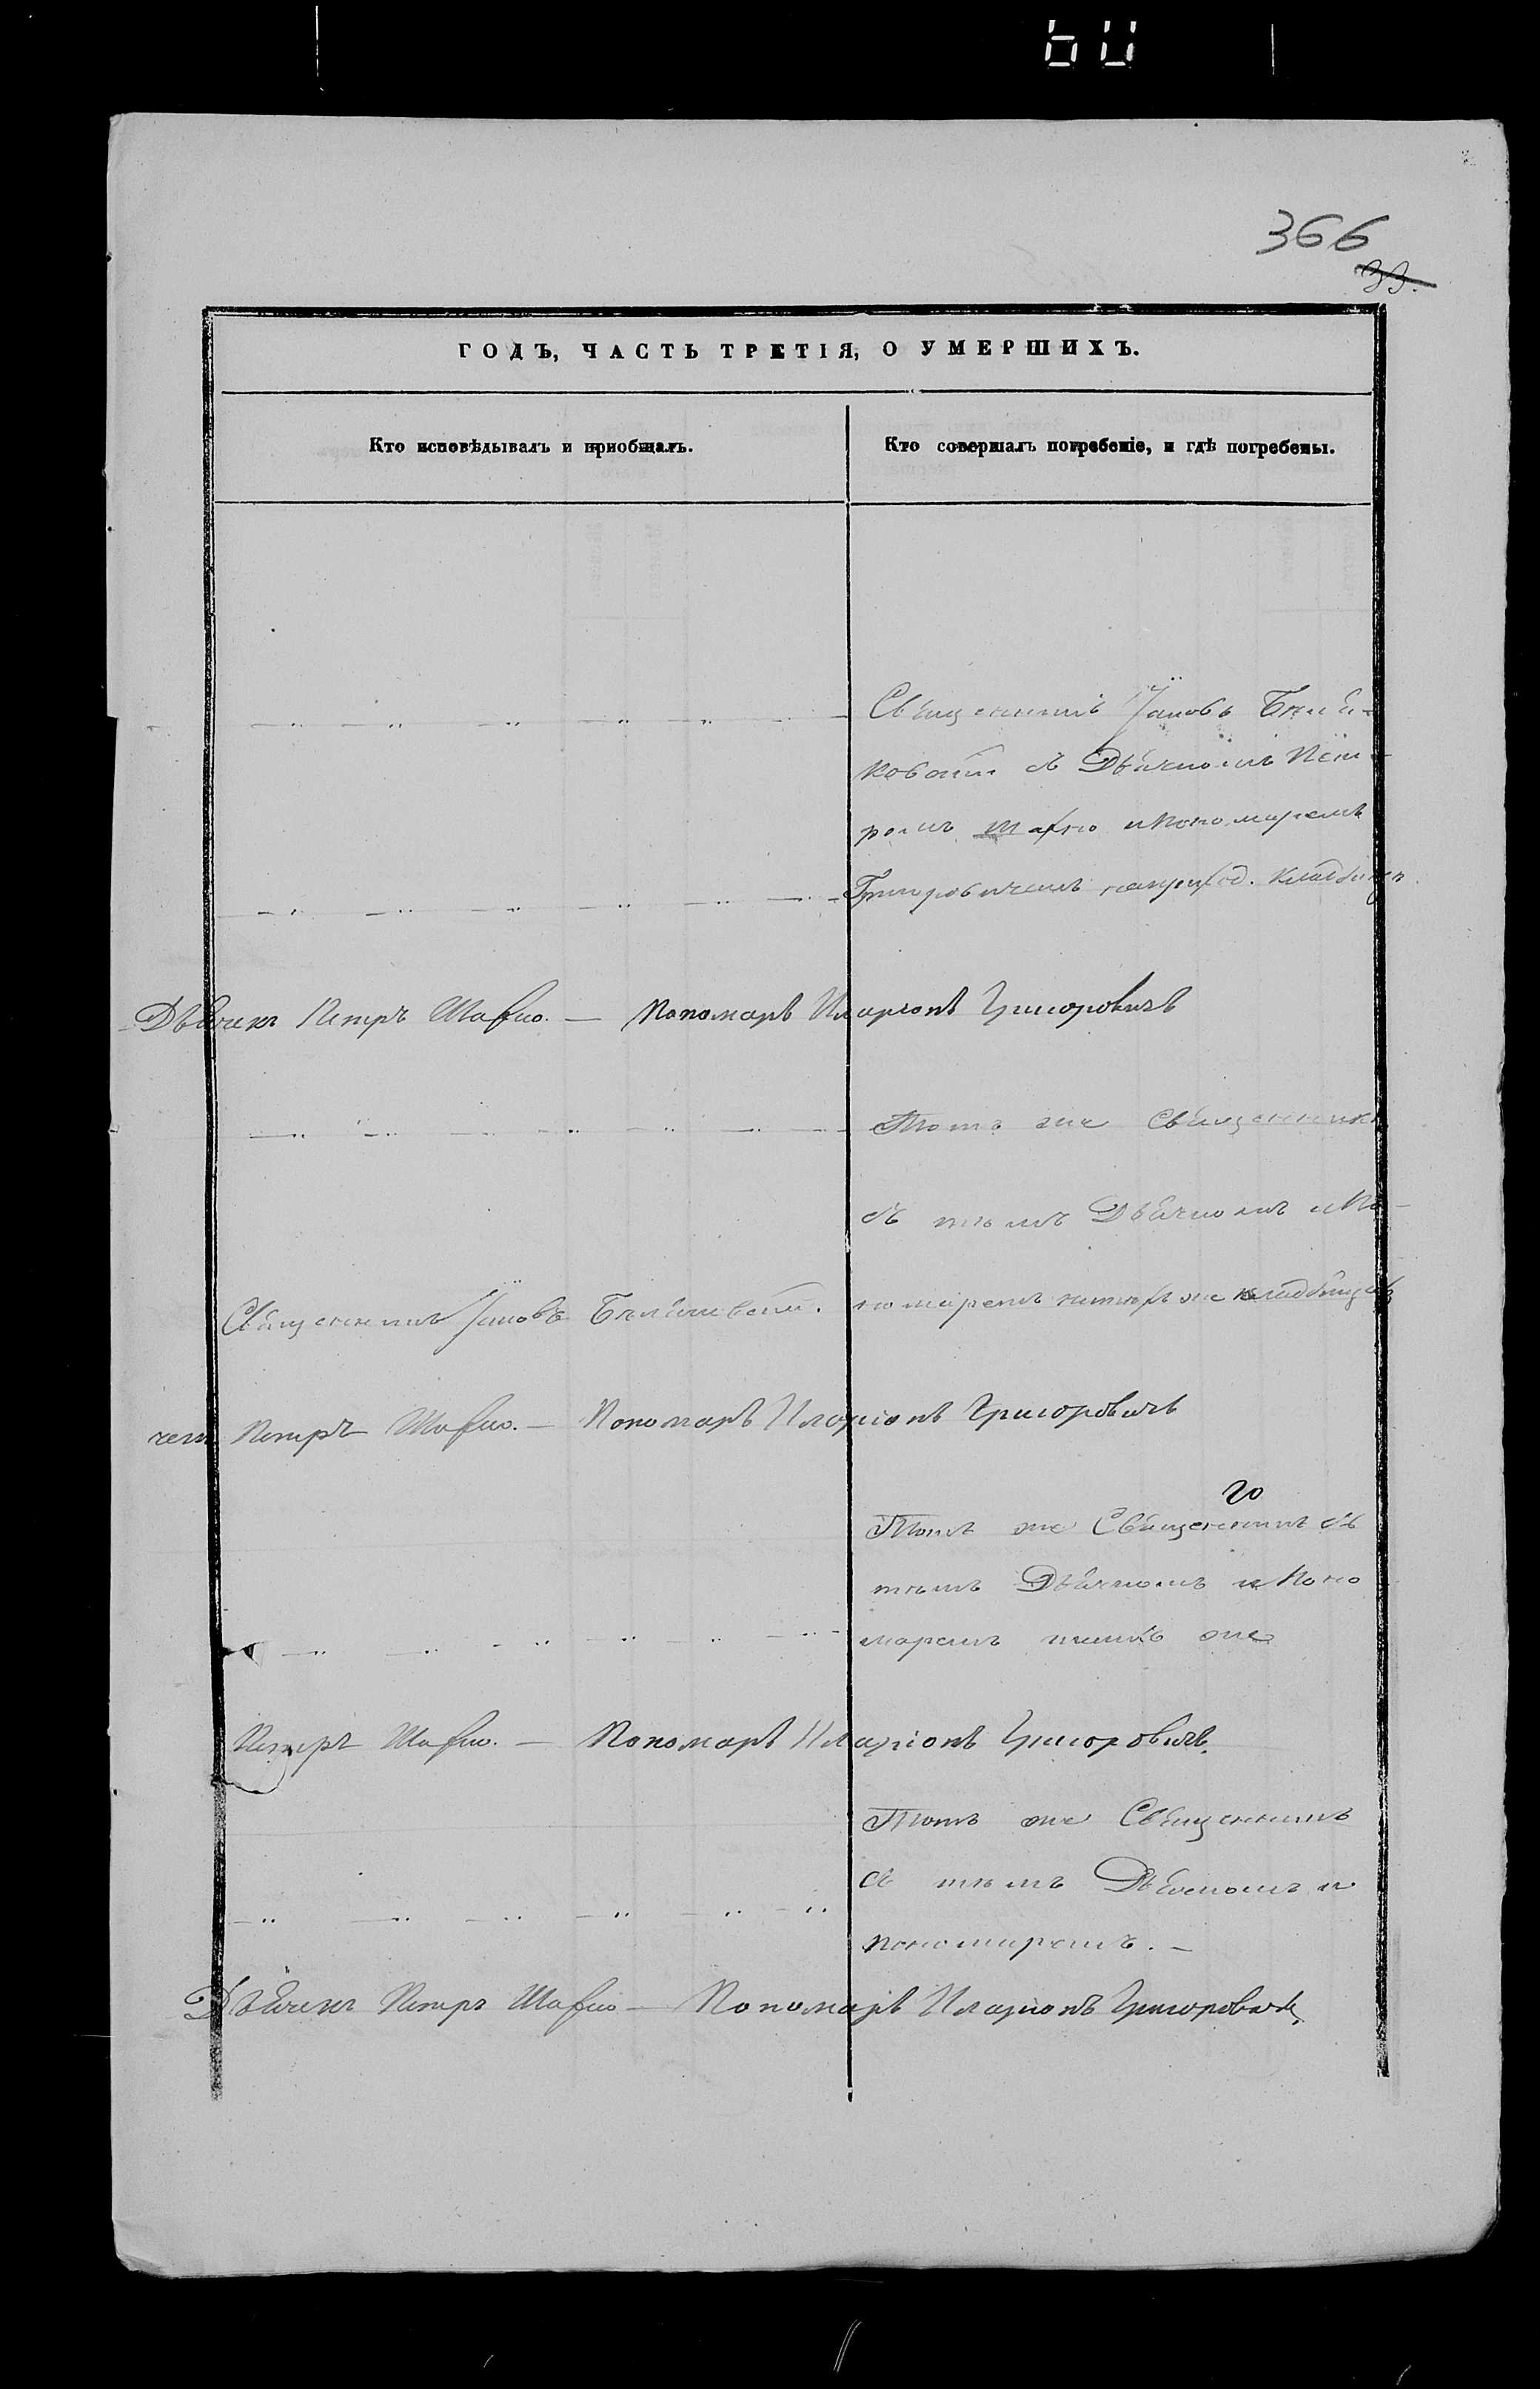 60
366
33.
ГОДЪ, ЧАСТЬ ТРЕТІЯ, О УМЕРШИХЪ.
Кто исповѣдывалъ и пріобщалъ.
Кто совершалъ погребеніе, и гдѣ погребены.
Священникъ Іаковъ
съ Дьячкомъ Пет-
ромъ Махно и Пономаремъ
Григоровичемъ на приход. кладбищѣ
Дьячекъ Петръ Махно. — Пономарь Иларіонъ Григоровичъ
Тотъ же Священникъ
съ тѣмъ Дьячкомъ и По-
Священникъ Іаковъ
номаремъ на томъ же кладбищѣ
чекъ Петръ Махно. — Пономарь Иларіонъ Григоровичъ
го
Тотъ же Священникъ съ
тѣмъ Дьячкомъ и Поно
маремъ тамъ же
Петръ Махно. — Пономарь Иларіонъ Григоровичъ.
Тотъ же Священникъ
съ тѣмъ Дьячкомъ и
пономаремъ. —
Дьячекъ Петръ Махно — Пономарь Иларіонъ Григоровичъ.